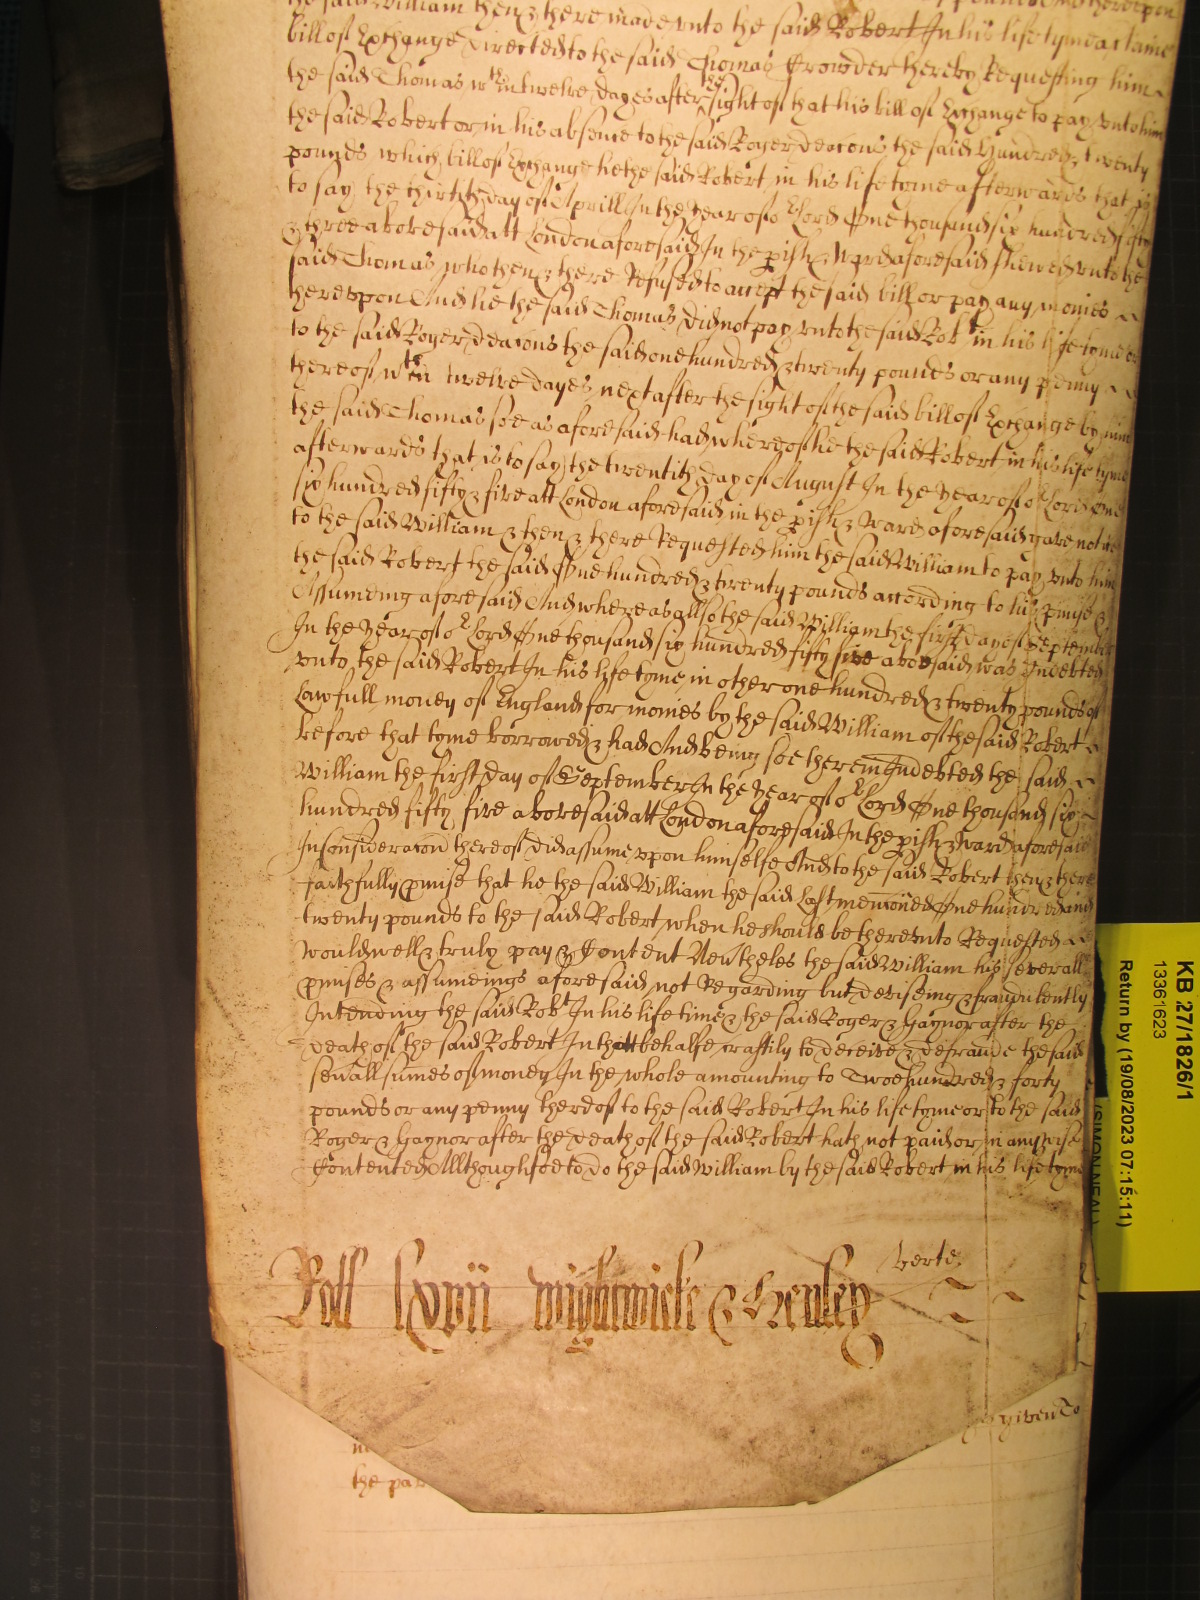 the said William then & there made unto the said Robert In his life tyme a claime
bill of Exchange directed to the said Thomas Crowder thereby Requesting him
the said Thomas wthin twelve dayes after the sight of that his bill of Exchange to pay unto him
the said Robert or in his absence to the said Roger deacons the said hundred & twenty
pounds which bill of Exchange he the said Robert in his life tyme afterwards that is
to say the thirtith day of Aprill In the year of or Lord One thousand six hundred fifty
& three abovesaid att London aforesaid In the pish & Ward aforesaid shewed unto the
said Thomas who then & there Refused to accept the said bill or pay any monies
thereupon And he the said Thomas did not pay unto the said Robt in his life tyme or
to the said Roger deacons the said one hundred & twenty pounds or any penny
thereof wthin twelve dayes next after the sight of the said bill of Exchange by him
the said Thomas soe as aforesaid had whereof he the said Robert in his life tyme
afterwards that is to say the twentith day of August In the year of or Lord One
six hundred fifty & five att London aforesaid in the pish & Ward aforesaid gave notice
to the said William & then & there Requested him the said William to pay unto him
the said Robert the said One hundred & twenty pounds according to his pmise &
Assumeing aforesaid And whereas allso the said William the first day of September
In the year of or Lord One thousand six hundred fifty five abovesaid was Indebted
unto the said Robert In his life tyme in other one hundred & twenty pounds of
Lawfull money of England for monies by the said William of the said Robert
before that tyme borrowed & had And being soe therein Indebted the said
William the first day of September In the year of or Lord One thousand six
hundred fifty five abovesaid att London aforesaid In the pish & Ward aforesaid
In consideracon thereof did assume upon himselfe And to the said Robert then & there
faithfully pmise that he the said William the said Last mencioned One hundred and
twenty pounds to the said Robert when he should be thereunto Requested
would well & truly pay & Content Neutheles the said William his severall
pmises & assumeings aforesaid not Regarding but deviseing & fraudulently
Intending the said Robt In his life time & the said Roger & Gaynor after the
death of the said Robert In that behalfe craftily to deceive & defraude the said
seuall sumes of money In the whole amounting to Twoe hundred & forty
pounds or any penny thereof to the said Robert In his life tyme or to the said
Roger & Gaynor after the death of the said Robert hath not paid or in any wise
Contented Allthough soe to do the said William by the said Robert in his life tyme
verte
Roll lxvii Mightwicke & Henley
given to
the par
KB 27/1826/1
13361623
Return by (19/08/2023 07:15:11)
(SIMON NEAL)